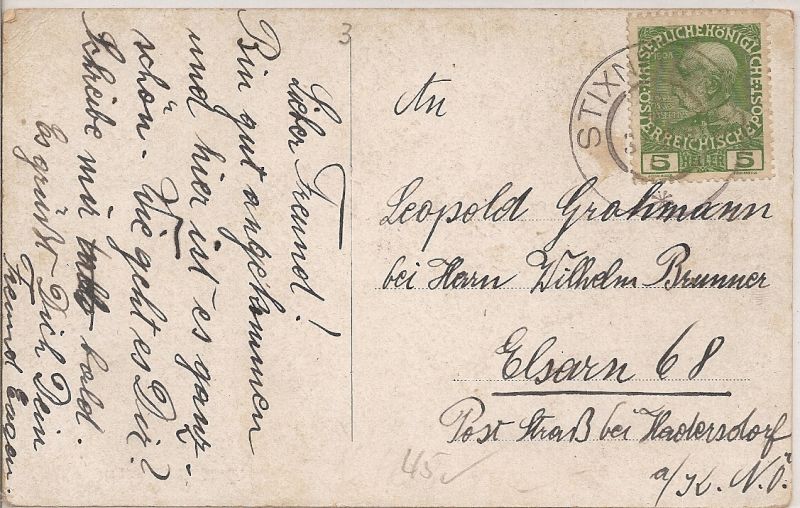 3
Lieber Freund!
Bin gut angekommen
und hier ist es ganz
schön. Wie geht es Dir?
Schreibe mir bald.
Es grüßt Dich Dein
Freund Eugen.
STIXN
KAISERLICHE KÖNIGLICHE ÖSTERREICHISCHE POST
5 HELLER 5
An
Leopold Grohmann
bei Herrn Wilhelm Brunner
Elsarn 68
Post Straß bei Hadersdorf
a/K. N.Ö.
45